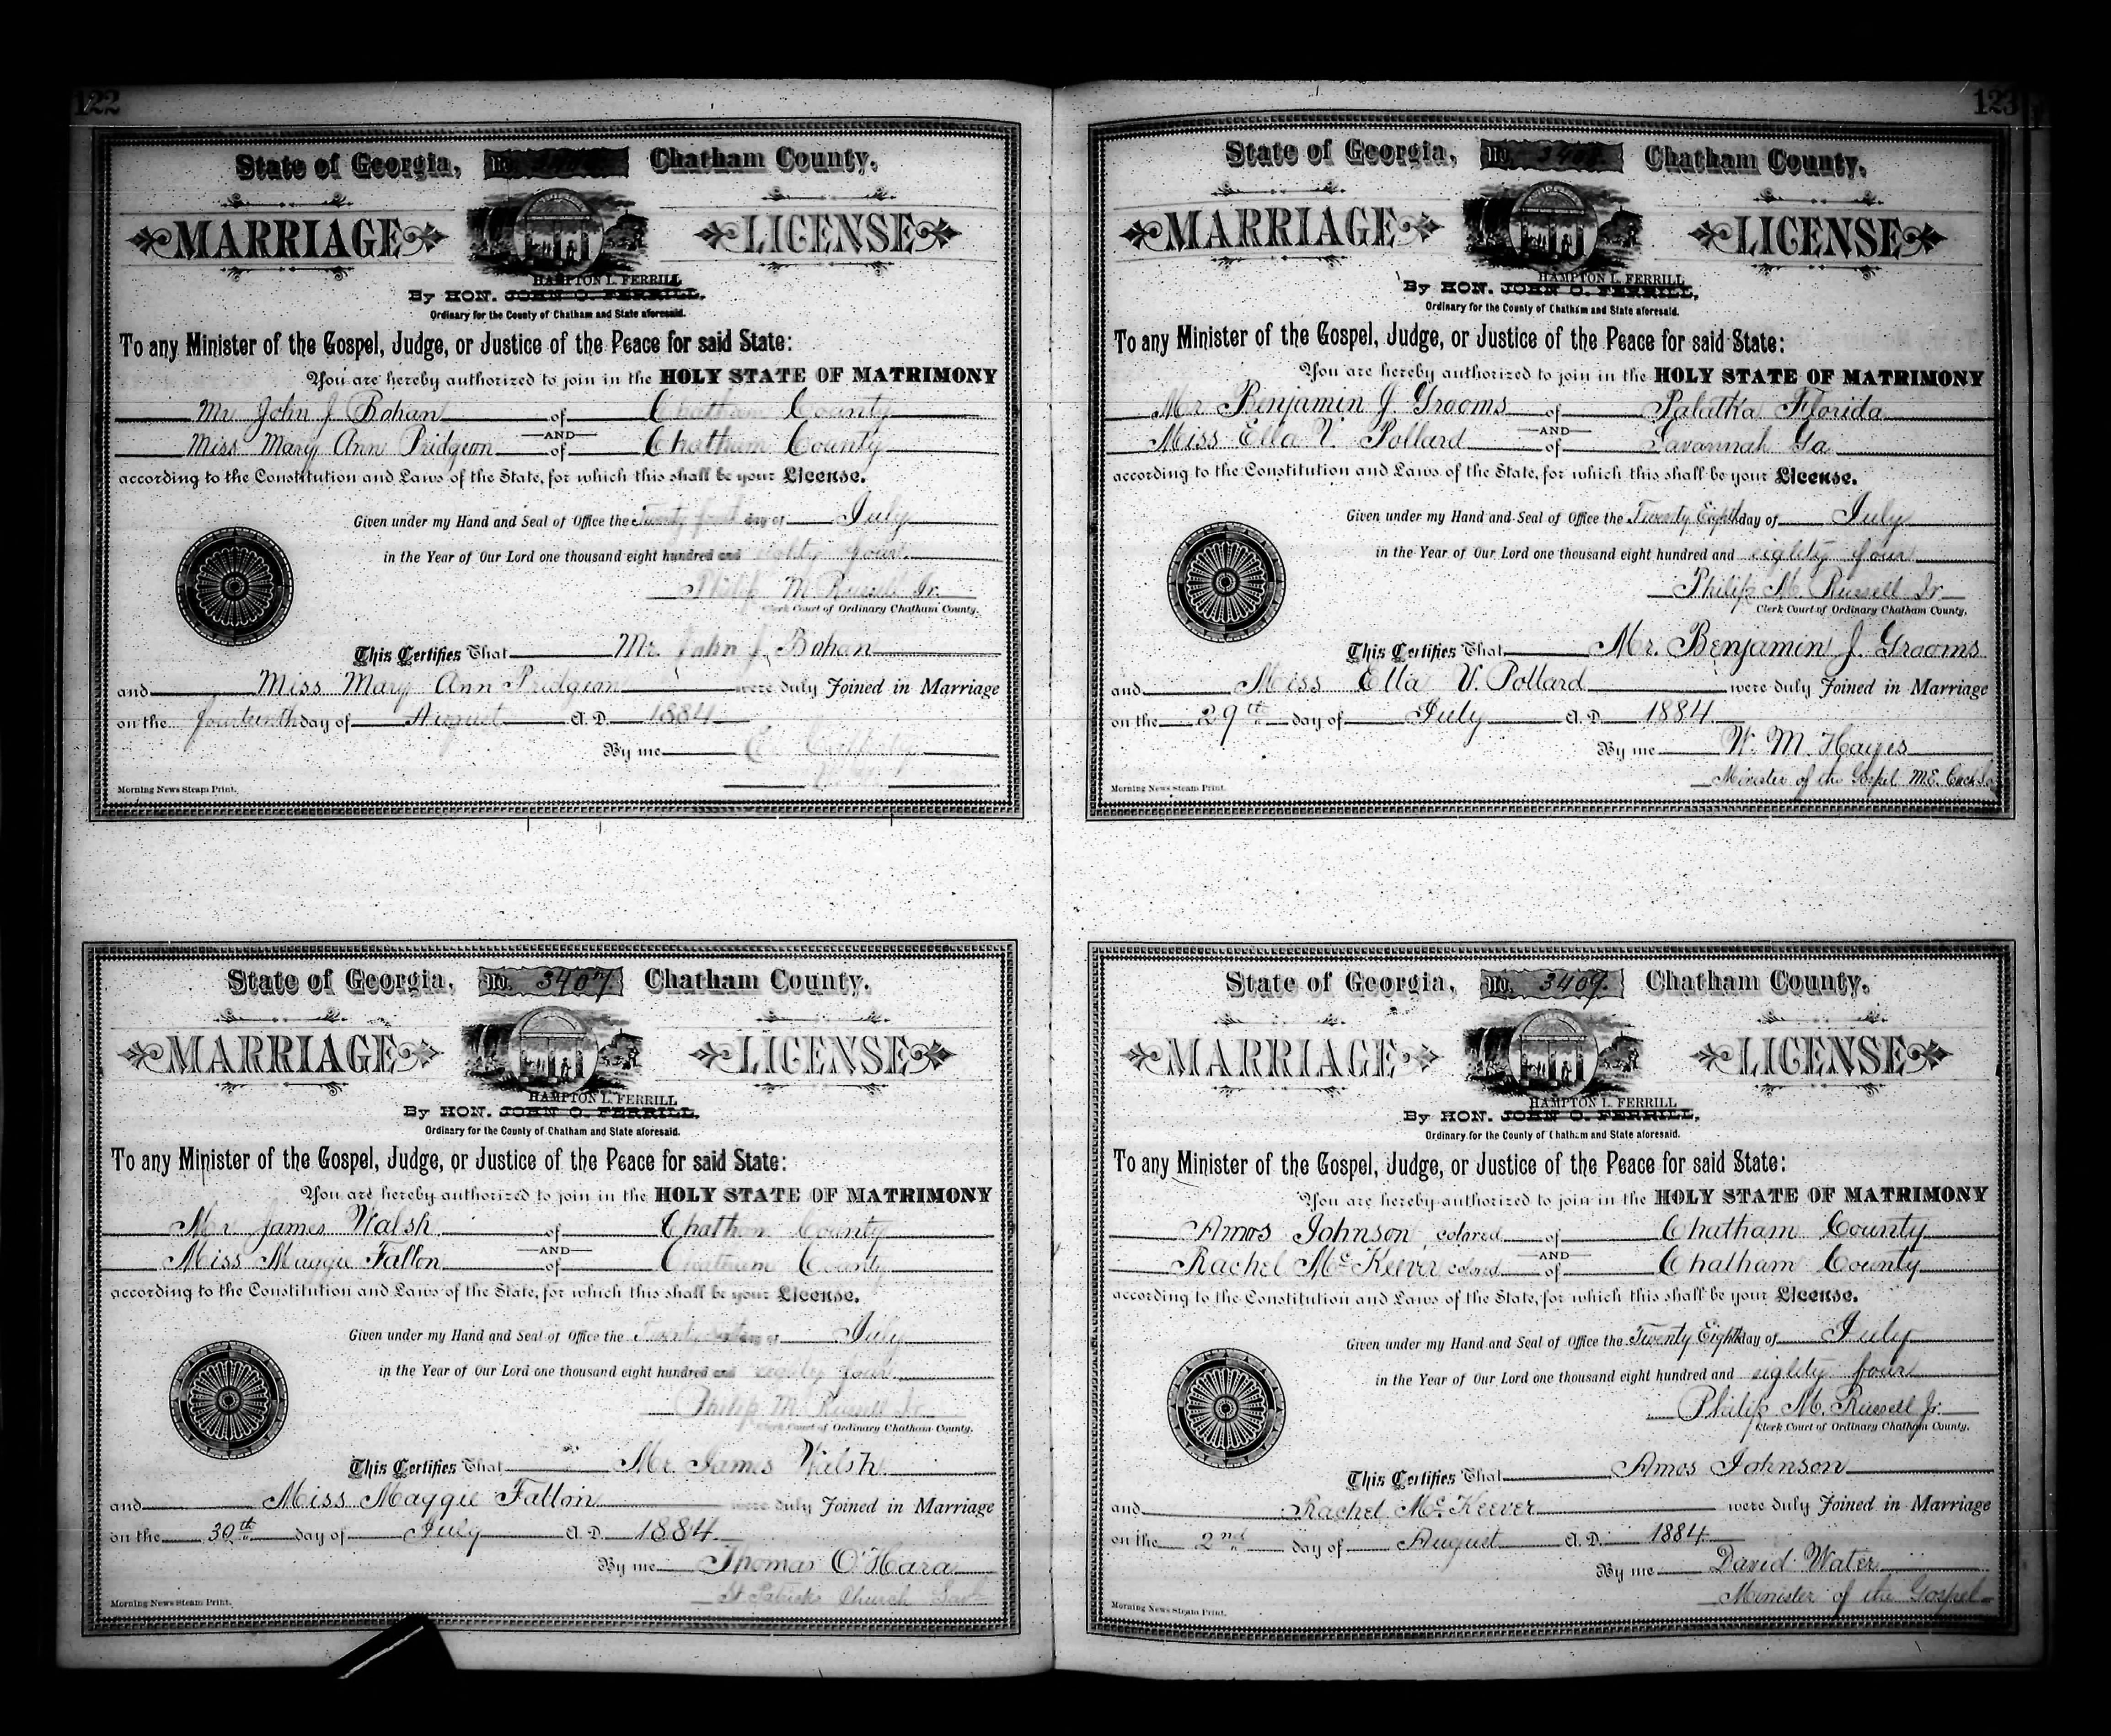 122
State of Georgia, No. Chatham County.
MARRIAGE LICENSE
HAMPTON L. FERRILL
By HON. JOHN O. FERRILL,
Ordinary for the County of Chatham and State aforesaid.
To any Minister of the Gospel, Judge, or Justice of the Peace for said State:
You are hereby authorized to join in the HOLY STATE OF MATRIMONY
Mr John J. Bohan of Chatham County
AND
Miss Mary Ann Pridgeon of Chatham County
according to the Constitution and Laws of the State, for which this shall be your License.
Given under my Hand and Seal of Office the Twenty day of July
in the Year of Our Lord one thousand eight hundred and eighty four
Philip M Russell Jr.
Clerk Court of Ordinary Chatham County.
This Certifies That Mr. John J. Bohan
and Miss Mary Ann Pridgeon were duly Joined in Marriage
on the fourteenth day of August A. D. 1884
By me
Morning News Steam Print.
State of Georgia, No. 3407. Chatham County.
MARRIAGE LICENSE
HAMPTON L. FERRILL
By HON. JOHN O. FERRILL,
Ordinary for the County of Chatham and State aforesaid.
To any Minister of the Gospel, Judge, or Justice of the Peace for said State:
You are hereby authorized to join in the HOLY STATE OF MATRIMONY
Mr. James Walsh of Chatham County
AND
Miss Maggie Fallon of Chatham County
according to the Constitution and Laws of the State, for which this shall be your License.
Given under my Hand and Seal of Office the Twenty day of July
in the Year of Our Lord one thousand eight hundred and eighty four
Philip M Russell Jr.
Clerk Court of Ordinary Chatham County.
This Certifies That Mr. James Walsh
and Miss Maggie Fallon were duly Joined in Marriage
on the 30th day of July A. D. 1884.
By me Thomas O'Hara
St Patricks Church Sav
Morning News Steam Print.
123
State of Georgia, No. 3408. Chatham County.
MARRIAGE LICENSE
HAMPTON L. FERRILL
By HON. JOHN O. FERRILL,
Ordinary for the County of Chatham and State aforesaid.
To any Minister of the Gospel, Judge, or Justice of the Peace for said State:
You are hereby authorized to join in the HOLY STATE OF MATRIMONY
Mr Benjamin J. Grooms of Palatka Florida
AND
Miss Ella V. Pollard of Savannah Ga
according to the Constitution and Laws of the State, for which this shall be your License.
Given under my Hand and Seal of Office the Twenty Eighth day of July
in the Year of Our Lord one thousand eight hundred and eighty four
Philip M. Russell Jr.
Clerk Court of Ordinary Chatham County.
This Certifies That Mr. Benjamin J. Grooms
and Miss Ella V. Pollard were duly Joined in Marriage
on the 29th day of July A. D. 1884
By me W. M. Hayes
Minister of the Gospel M.E. Chch So
Morning News Steam Print.
State of Georgia, No. 3409. Chatham County.
MARRIAGE LICENSE
HAMPTON L. FERRILL
By HON. JOHN O. FERRILL,
Ordinary for the County of Chatham and State aforesaid.
To any Minister of the Gospel, Judge, or Justice of the Peace for said State:
You are hereby authorized to join in the HOLY STATE OF MATRIMONY
Amos Johnson colored of Chatham County
AND
Rachel McKeever colored of Chatham County
according to the Constitution and Laws of the State, for which this shall be your License.
Given under my Hand and Seal of Office the Twenty Eighth day of July
in the Year of Our Lord one thousand eight hundred and eighty four
Philip M. Russell Jr.
Clerk Court of Ordinary Chatham County.
This Certifies That Amos Johnson
and Rachel McKeever were duly Joined in Marriage
on the 2nd day of August A. D. 1884.
By me David Water
Minister of the Gospel
Morning News Steam Print.